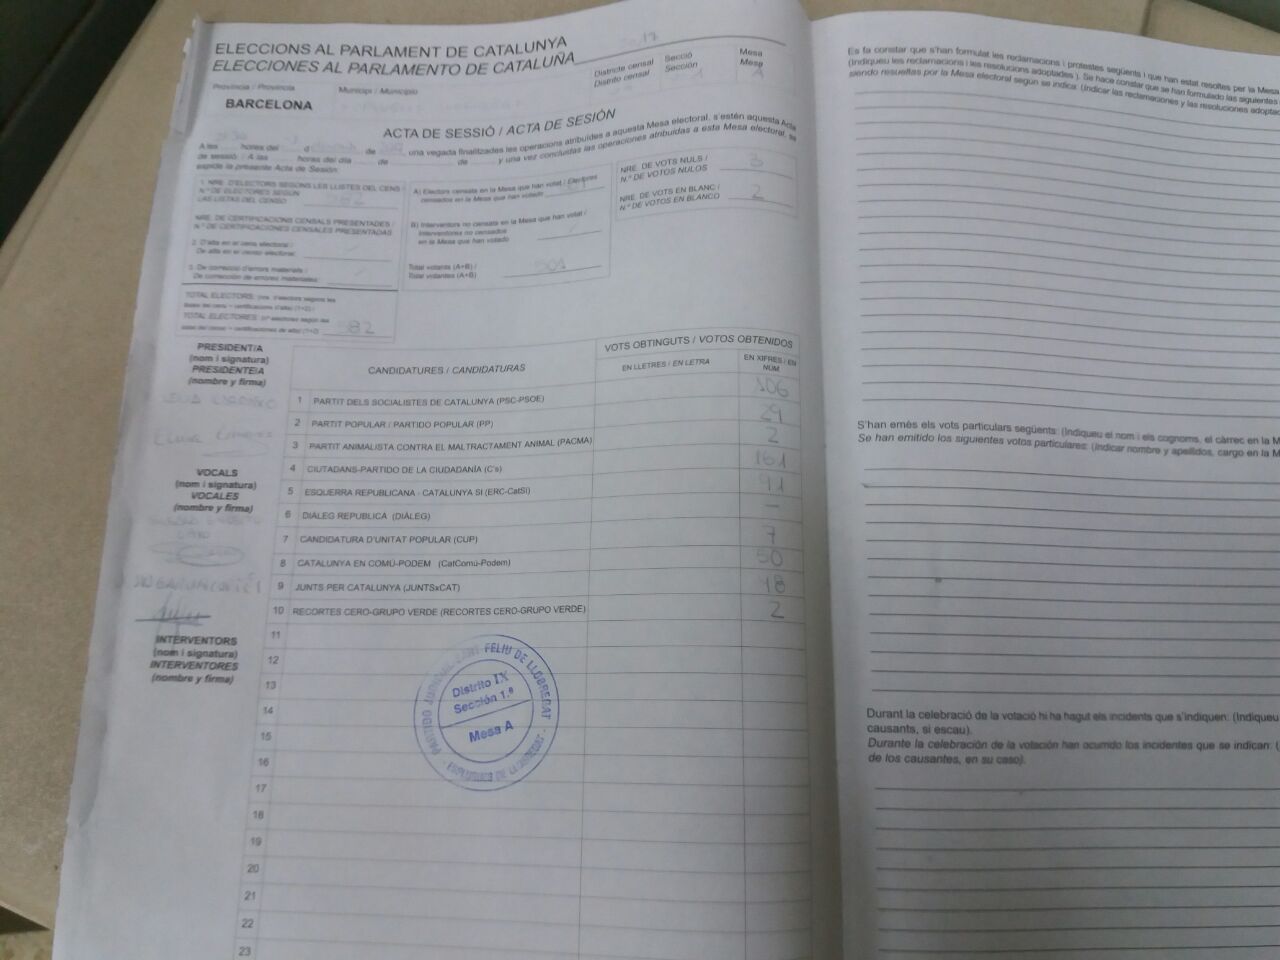 ELECCIONS AL PARLAMENT DE CATALUNYA 2017
ELECCIONES AL PARLAMENTO DE CATALUÑA
Província / Provincia
Municipi / Municipio
BARCELONA
Districte censal
Distrito censal
Secció
Sección
1
Mesa
Mesa
A
ACTA DE SESSIÓ / ACTA DE SESIÓN
A les hores del d de una vegada finalitzades les operacions atribuïdes a aquesta Mesa electoral, s'estén aquesta Acta
de sessió. / A las horas del día de de y una vez concluidas las operaciones atribuidas a esta Mesa electoral, se
expide la presente Acta de Sesión:
1. NRE. D'ELECTORS SEGONS LES LLISTES DEL CENS
N.º DE ELECTORES SEGÚN
LAS LISTAS DEL CENSO
NRE. DE CERTIFICACIONS CENSALS PRESENTADES /
N.º DE CERTIFICACIONES CENSALES PRESENTADAS
2. D'alta en el cens electoral /
De alta en el censo electoral:
3. De correcció d'errors materials /
De corrección de errores materiales:
TOTAL ELECTORS: (nre. d'electors segons les
llistes del cens + certificacions d'alta) (1+2) /
TOTAL ELECTORES: (nº electores según las
listas del censo + certificaciones de alta) (1+2) 582
A) Electors censats en la Mesa que han votat / Electores
censados en la Mesa que han votado
B) Interventors no censats en la Mesa que han votat /
Interventores no censados
en la Mesa que han votado
Total votants (A+B) /
Total votantes (A+B) 501
NRE. DE VOTS NULS /
N.º DE VOTOS NULOS 3
NRE. DE VOTS EN BLANC /
N.º DE VOTOS EN BLANCO 2
PRESIDENT/A
(nom i signatura)
PRESIDENTE/A
(nombre y firma)
VOCALS
(nom i signatura)
VOCALES
(nombre y firma)
INTERVENTORS
(nom i signatura)
INTERVENTORES
(nombre y firma)
CANDIDATURES / CANDIDATURAS
VOTS OBTINGUTS / VOTOS OBTENIDOS
EN LLETRES / EN LETRA
EN XIFRES / EN
NÚM.
1 PARTIT DELS SOCIALISTES DE CATALUNYA (PSC-PSOE) 106
2 PARTIT POPULAR / PARTIDO POPULAR (PP) 29
3 PARTIT ANIMALISTA CONTRA EL MALTRACTAMENT ANIMAL (PACMA) 2
4 CIUTADANS-PARTIDO DE LA CIUDADANÍA (C's) 161
5 ESQUERRA REPUBLICANA - CATALUNYA SI (ERC-CatSí) 91
6 DIÀLEG REPUBLICÀ (DIÀLEG) –
7 CANDIDATURA D'UNITAT POPULAR (CUP) 7
8 CATALUNYA EN COMÚ-PODEM (CatComú-Podem) 50
9 JUNTS PER CATALUNYA (JUNTSxCAT) 48
10 RECORTES CERO-GRUPO VERDE (RECORTES CERO-GRUPO VERDE) 2
11
12
13
14
15
16
17
18
19
20
21
22
23
PARTIDO JUDICIAL SANT FELIU DE LLOBREGAT
Distrito IX
Sección 1.ª
Mesa A
ESPLUGUES DE LLOBREGAT
Es fa constar que s'han formulat les reclamacions i protestes següents i que han estat resoltes per la Mesa
(Indiqueu les reclamacions i les resolucions adoptades ). Se hace constar que se han formulado las siguientes
siendo resueltas por la Mesa electoral según se indica: (Indicar las reclamaciones y las resoluciones
S'han emès els vots particulars següents: (Indiqueu el nom i els cognoms, el càrrec en la M
Se han emitido los siguientes votos particulares: (Indicar nombre y apellidos, cargo en la M
Durant la celebració de la votació hi ha hagut els incidents que s'indiquen: (Indiqueu
causants, si escau).
Durante la celebración de la votación han ocurrido los incidentes que se indican: (
de los causantes, en su caso).